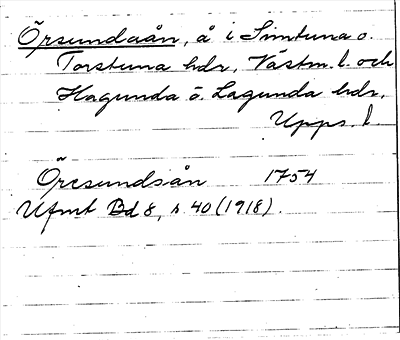 Örsundaån, å i Simtuna o.
Torstuna hdr, Västm. l. och
Hagunda o. Lagunda hdr,
Upps. l.
Örcsundsån 1754
Ufmt Bd 8, s. 40 (1918).